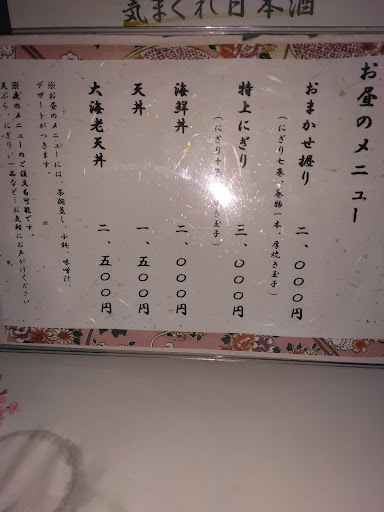 気まぐれ日本酒
お昼のメニュー
おまかせ握り 二、〇〇〇円
(にぎり七巻、巻物一本、厚焼き玉子)
特上にぎり 三、〇〇〇円
(にぎり十巻、厚焼き玉子)
海鮮丼 二、〇〇〇円
天丼 一、五〇〇円
大海老天丼 二、五〇〇円
※お昼のメニューには、茶碗蒸し、小鉢、味噌汁、
デザートがつきます。
※夜のメニューのご注文も可能です。
天ぷら、にぎり、一品など…お気軽にお声がけください